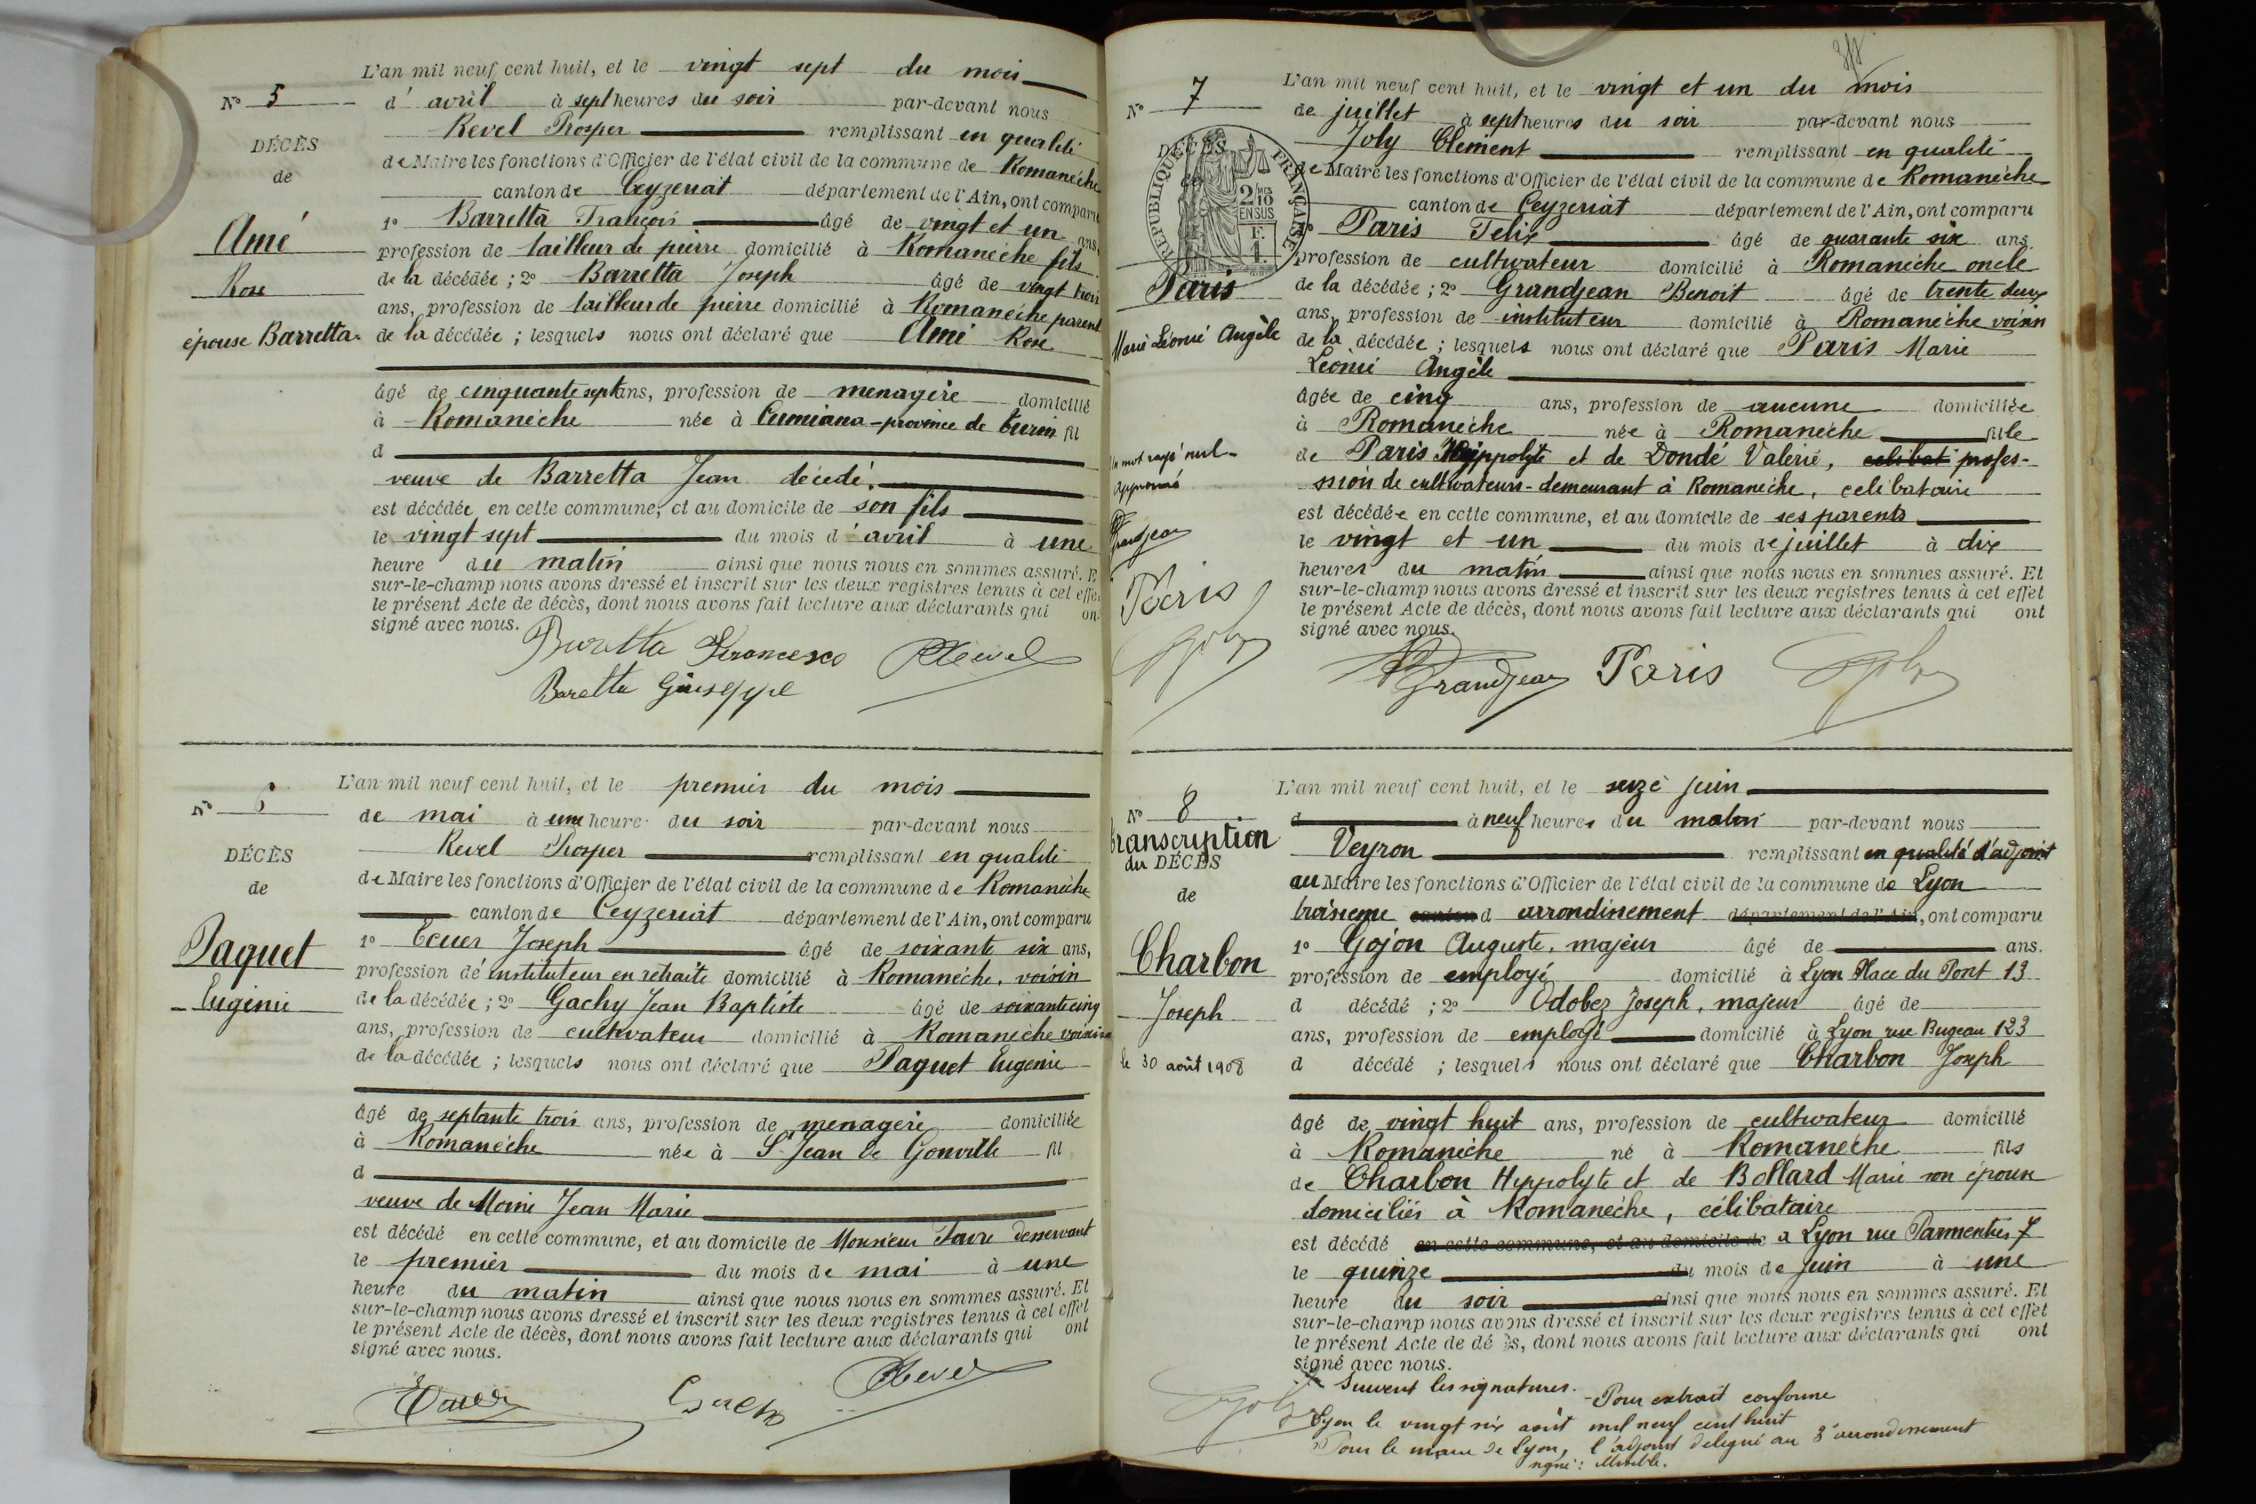 L'an mil neuf cent huit, et le vingt sept du mois
N° 5
d' avril à sept heures du soir par-devant nous
Revel Prosper remplissant en qualité
DÉCÈS
de Maire les fonctions d'Officier de l'état civil de la commune de Romanèche
de
canton de Ceyzeriat département de l'Ain, ont comparu
Amé
1° Barretta François âgé de vingt et un ans,
profession de tailleur de pierre domicilié à Romanèche fils
Rose
de la décédée ; 2° Barretta Joseph âgé de vingt trois
ans, profession de tailleur de pierre domicilié à Romanèche parent
épouse Barretta
de la décédée ; lesquels nous ont déclaré que Amé Rose
âgé de cinquante sept ans, profession de menagère domicilié
à Romanèche née à Cumiana - province de Turin fil
d
veuve de Barretta Jean décédé.
est décédée en cette commune, et au domicile de son fils
le vingt sept du mois d'avril à une
heure du matin ainsi que nous nous en sommes assuré. Et
sur-le-champ nous avons dressé et inscrit sur les deux registres tenus à cet effet
le présent Acte de décès, dont nous avons fait lecture aux déclarants qui on
signé avec nous.
Baratta Francesco PRevel
Baretta Giuseppe
L'an mil neuf cent huit, et le premier du mois
N° 6
de mai à une heure du soir par-devant nous
Revel Prosper remplissant en qualité
DÉCÈS
de Maire les fonctions d'Officier de l'état civil de la commune de Romanèche
de
canton de Ceyzeriat département de l'Ain, ont comparu
Paquet
1° Ecuer Joseph âgé de soixante six ans,
profession de instituteur en retraite domicilié à Romanèche, voisin
Eugénie
de la décédée ; 2° Gachy Jean Baptiste âgé de soixante cinq
ans, profession de cultivateur domicilié à Romanèche voisin
de la décédée ; lesquels nous ont déclaré que Paquet Eugénie
âgé de septante trois ans, profession de menagère domiciliée
à Romanèche née à St Jean de Gonville fil
d
veuve de Moine Jean Marie
est décédé en cette commune, et au domicile de Monsieur Favre desservant
le premier du mois de mai à une
heure du matin ainsi que nous nous en sommes assuré. Et
sur-le-champ nous avons dressé et inscrit sur les deux registres tenus à cet effet
le présent Acte de décès, dont nous avons fait lecture aux déclarants qui ont
signé avec nous.
PRevel
L'an mil neuf cent huit, et le vingt et un du mois
N° 7
de juillet à sept heures du soir par-devant nous
Joly Clément remplissant en qualité
DÉCÈS
RÉPUBLIQUE FRANÇAISE
2/10 EN SUS
de Maire les fonctions d'Officier de l'état civil de la commune de Romanèche
canton de Ceyzeriat département de l'Ain, ont comparu
1° Paris Félix âgé de quarante six ans.
profession de cultivateur domicilié à Romanèche oncle
Paris
de la décédée ; 2° Grandjean Benoit âgé de trente deux
ans, profession de instituteur domicilié à Romanèche voisin
Marie Léonie Angèle
de la décédée ; lesquels nous ont déclaré que Paris Marie
Léonie Angèle
âgée de cinq ans, profession de aucune domiciliée
à Romanèche née à Romanèche fille
Un mot rayé nul
approuvé
de Paris Hyppolyte et de Dondé Valérie, celibat profes-
ssion de cultivateurs - demeurant à Romanèche, celibataire
est décédée en cette commune, et au domicile de ses parents
Grandjean
le vingt et un du mois de juillet à dix
heures du matin ainsi que nous nous en sommes assuré. Et
Paris
sur-le-champ nous avons dressé et inscrit sur les deux registres tenus à cet effet
le présent Acte de décès, dont nous avons fait lecture aux déclarants qui ont
Joly
signé avec nous.
Grandjean Paris Joly
L'an mil neuf cent huit, et le seize juin
N° 8
d à neuf heures du matin par-devant nous
transcription
du DÉCÈS
Veyron remplissant en qualité d'adjoint
au Maire les fonctions d'Officier de l'état civil de la commune de Lyon
de
troisieme canton d arrondissement département de l'Ain, ont comparu
Charbon
1° Gojon Auguste, majeur âgé de ans.
profession de employé domicilié à Lyon Place du Pont 13
Joseph
d décédé ; 2° Odobez Joseph, majeur âgé de
ans, profession de employé domicilié à Lyon rue Bugeau 123
le 30 août 1908
d décédé ; lesquels nous ont déclaré que Charbon Joseph
âgé de vingt huit ans, profession de cultivateur domicilié
à Romanèche né à Romanèche fils
de Charbon Hyppolyte et de Bollard Marie son épouse
domiciliés à Romanèche, célibataire
est décédé en cette commune, et au domicile de a Lyon rue Parmentier 7
le quinze du mois de juin à une
heure du soir ainsi que nous nous en sommes assuré. Et
sur-le-champ nous avons dressé et inscrit sur les deux registres tenus à cet effet
le présent Acte de décès, dont nous avons fait lecture aux déclarants qui ont
signé avec nous.
Suivent les signatures. - Pour extrait conforme
Joly
Lyon le vingt six août mil neuf cent huit
Pour le maire de Lyon, l'adjoint délégué au 3e arrondissement
signé :